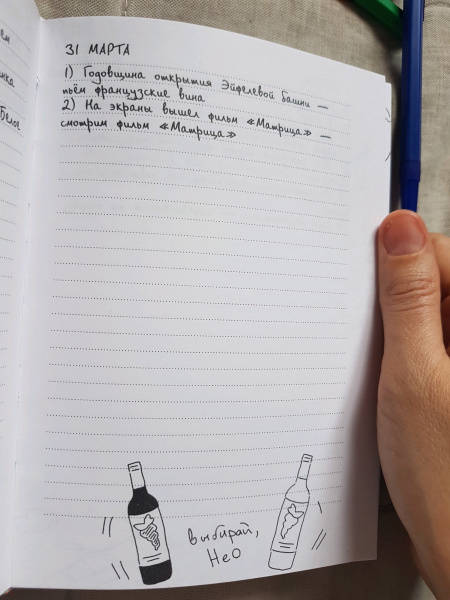 ем
нка
Белое
31 МАРТА
1) Годовщина открытия Эйфелевой башни —
пьём французские вина
2) На экраны вышел фильм «Матрица» —
смотрим фильм «Матрица»
выбирай,
НеО